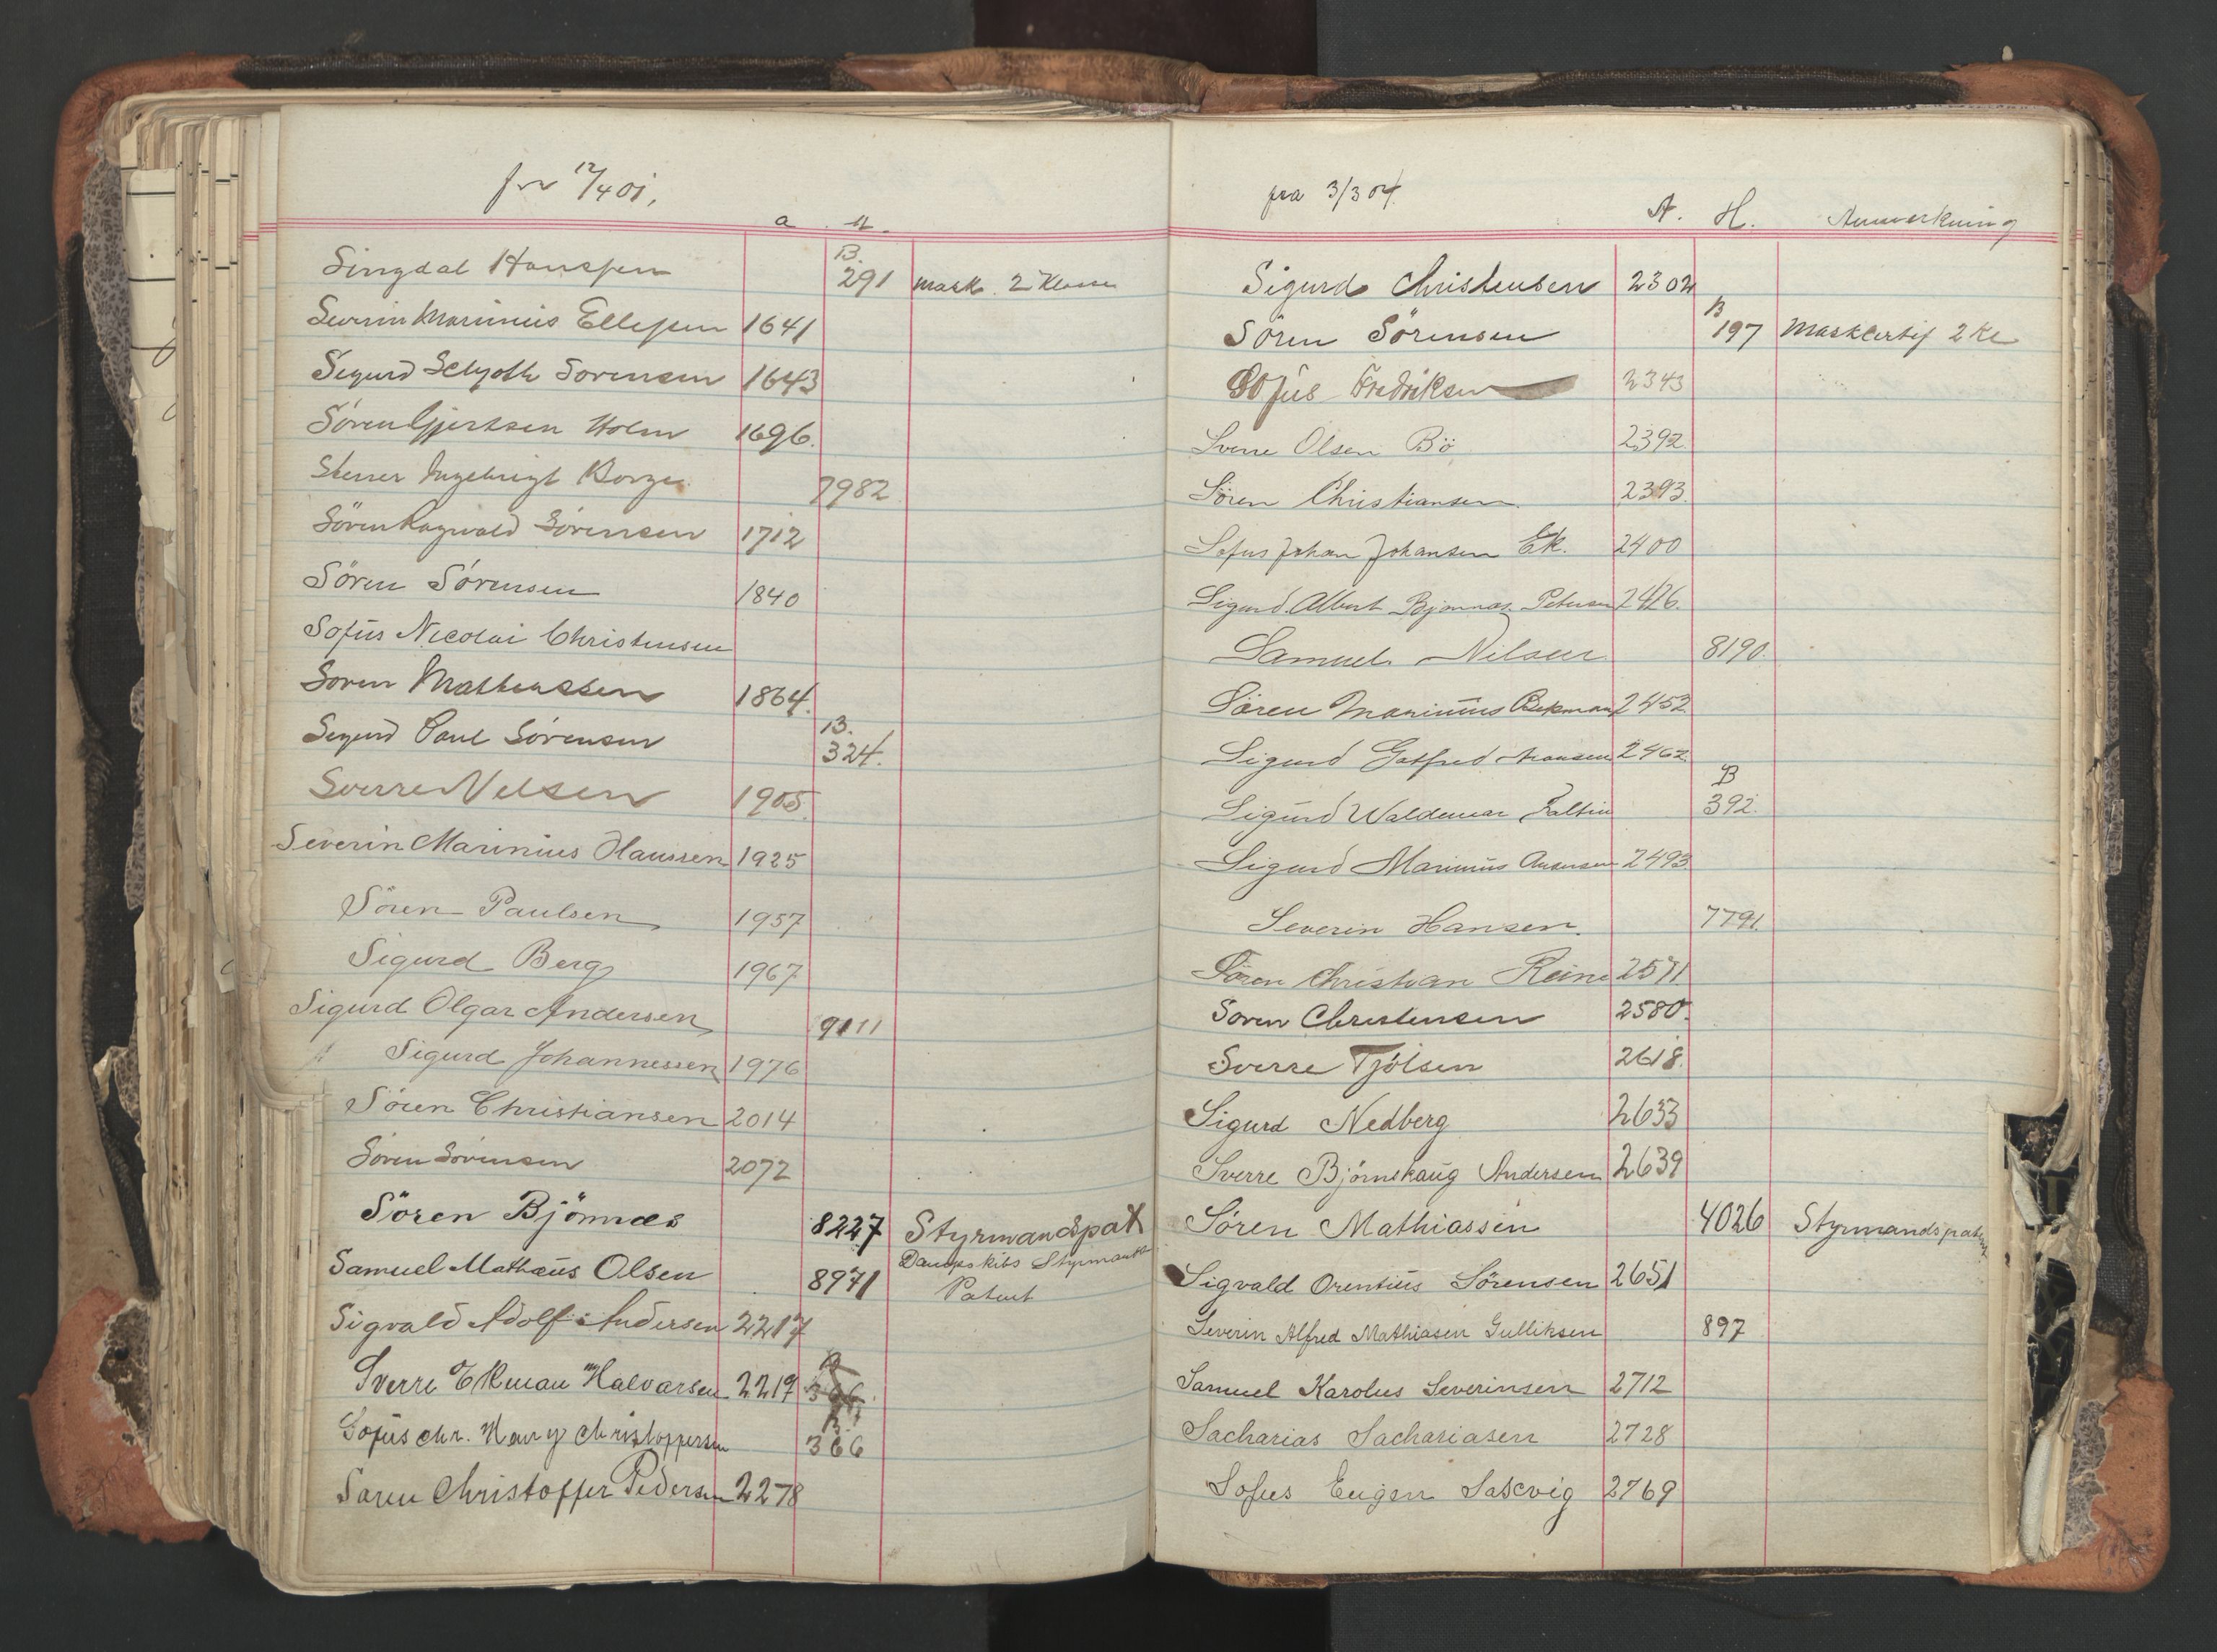 fra 12/4 01.
a H.
Singdal Hanssen B. 291 Mask. 2 Klasse
Severin Marinius Ellefsen 1641
Sigurd Sorensen 1643
Sören Gjertsen Holm 1696.
Sverre Ingebrigt Borge 7982
Sören Ragnvald Sörensen 1712
Sören Sörensen 1840
Sofus Nicolai Christensen
Soren Mathiassen 1864.
Sigurd Paul Sörensen B. 324.
Sverre Nelsen 1905.
Severin Marinius Hanssen 1925
Sören Paulsen 1957
Sigurd Berg 1967
Sigurd Olgar Andersen 9111
Sigurd Johannessen 1976
Sören Christiansen 2014
Sören Sörensen 2072
Sören Bjönnes 8227 Styrmandspat
Samuel Mathæus Olsen 8971 Dampskibs Styrmands
Patent
Sigvald Adolf Andersen 2217
Sverre Ekman Halvorsen 2219 B 366.
Sofus Chr. Hany Christoffersen B. 366
Søren Christoffer Pedersen 2278
fra 3/3 04.
A. H. Anmerkning
Sigurd Christensen 2302
Sören Sörensen B 197 Maskcertif 2 Kl
Sofus Fredriksen 2343
Sverre Olsen Bö 2392.
Sören Christiansen. 2393.
Sofus Johan Johansen Ek. 2400
Sigurd Albert Bjonnæs Petersen 2426.
Samuel Nilsen 8190.
Sören Marinius Bekman 2452
Sigurd Gotfred Aronsen 2462
Sigurd Waldemar Faltin B 392.
Sigurd Marinius Andersen 2493
Severin Hansen. 7791.
Sören Christian Reine 2571
Soren Christensen 2580.
Sverre Tjölsen 2618.
Sigurd Nedberg 2633
Sverre Björnskaug Andersen 2639
Sören Mathiassen 4026 Styrmandspatent
Sigvald Orentius Sörensen 2651
Severin Alfred Mathiasen Gulliksen 897
Samuel Karolus Severinsen 2712
Sacharias Sachariasen 2728
Sofus Eugen Sascvig 2769